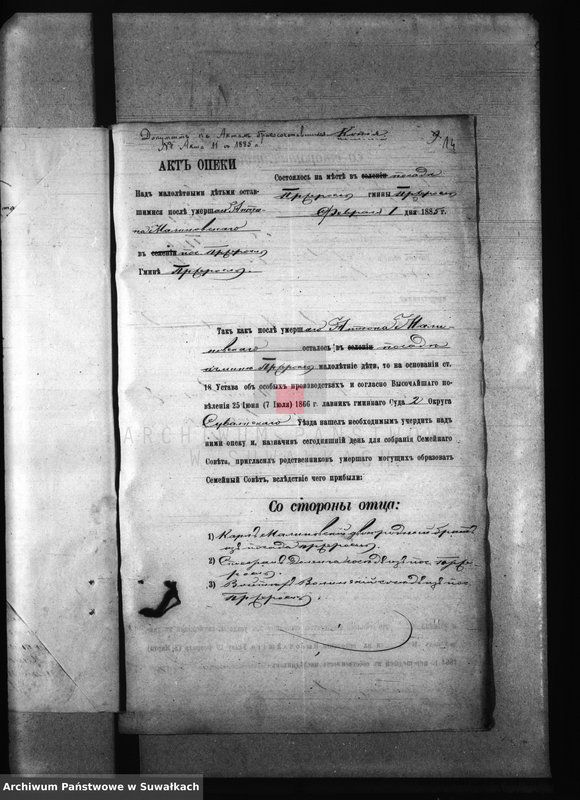 Документъ къ Актамъ бракосочетавшихся
№ Акта 11 о 1895 г.
9 14
АКТЪ ОПЕКИ
Надъ малолѣтными дѣтьми остав-
шимися послѣ умершаго Анто-
на Малиновскаго
въ селеніи пос. Прероссль
Гминѣ Прероссль
Состоялось на мѣстѣ въ селеніи посада
Прероссль гмины Прероссль
Февраля 1 дня 1885 г.
Такъ какъ послѣ умершаго Антона Мали-
новскаго осталось въ селеніи посадѣ
гмина Прероссль малолѣтніе дѣти, то на основаніи ст.
18 Устава объ особыхъ производствахъ и согласно Высочайшаго по-
велѣнія 25 Іюня (7 Іюля) 1866 г. лавникъ гминнаго Суда 2 Округа
Сувалкскаго Уѣзда нашелъ необходимымъ учердить надъ
ними опеку и, назначивъ сегодняшній день для собранія Семейнаго
Совѣта, пригласилъ родственниковъ умершаго могущихъ образовать
Семейный Совѣтъ, вслѣдствіе чего прибыли:
Со стороны отца:
1) Карлъ Малиновскій двоюродный братъ
изъ посада Прероссль
2) сосѣдъ изъ пос. Пре-
россль
3) сосѣдъ изъ пос.
Прероссль.
ARCHIWUM
Archiwum Państwowe w Suwałkach